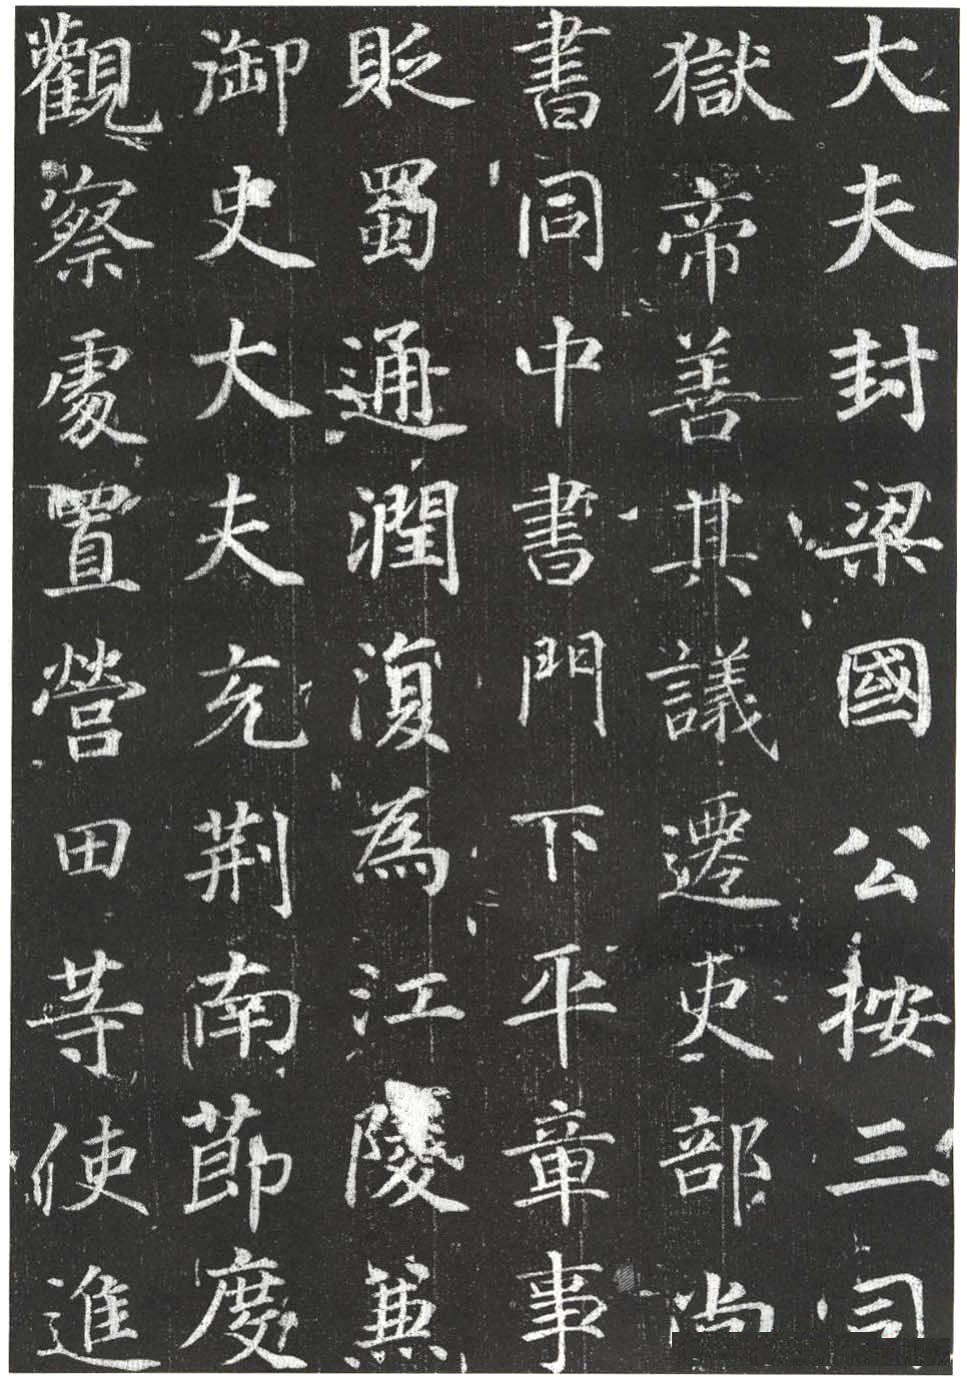 大夫封梁國公按三司
獄帝善其議遷吏部尚
書同中書門下平章事
貶蜀通潤復為江陵兼
御史大夫充荆南節度
觀察處置營田等使進